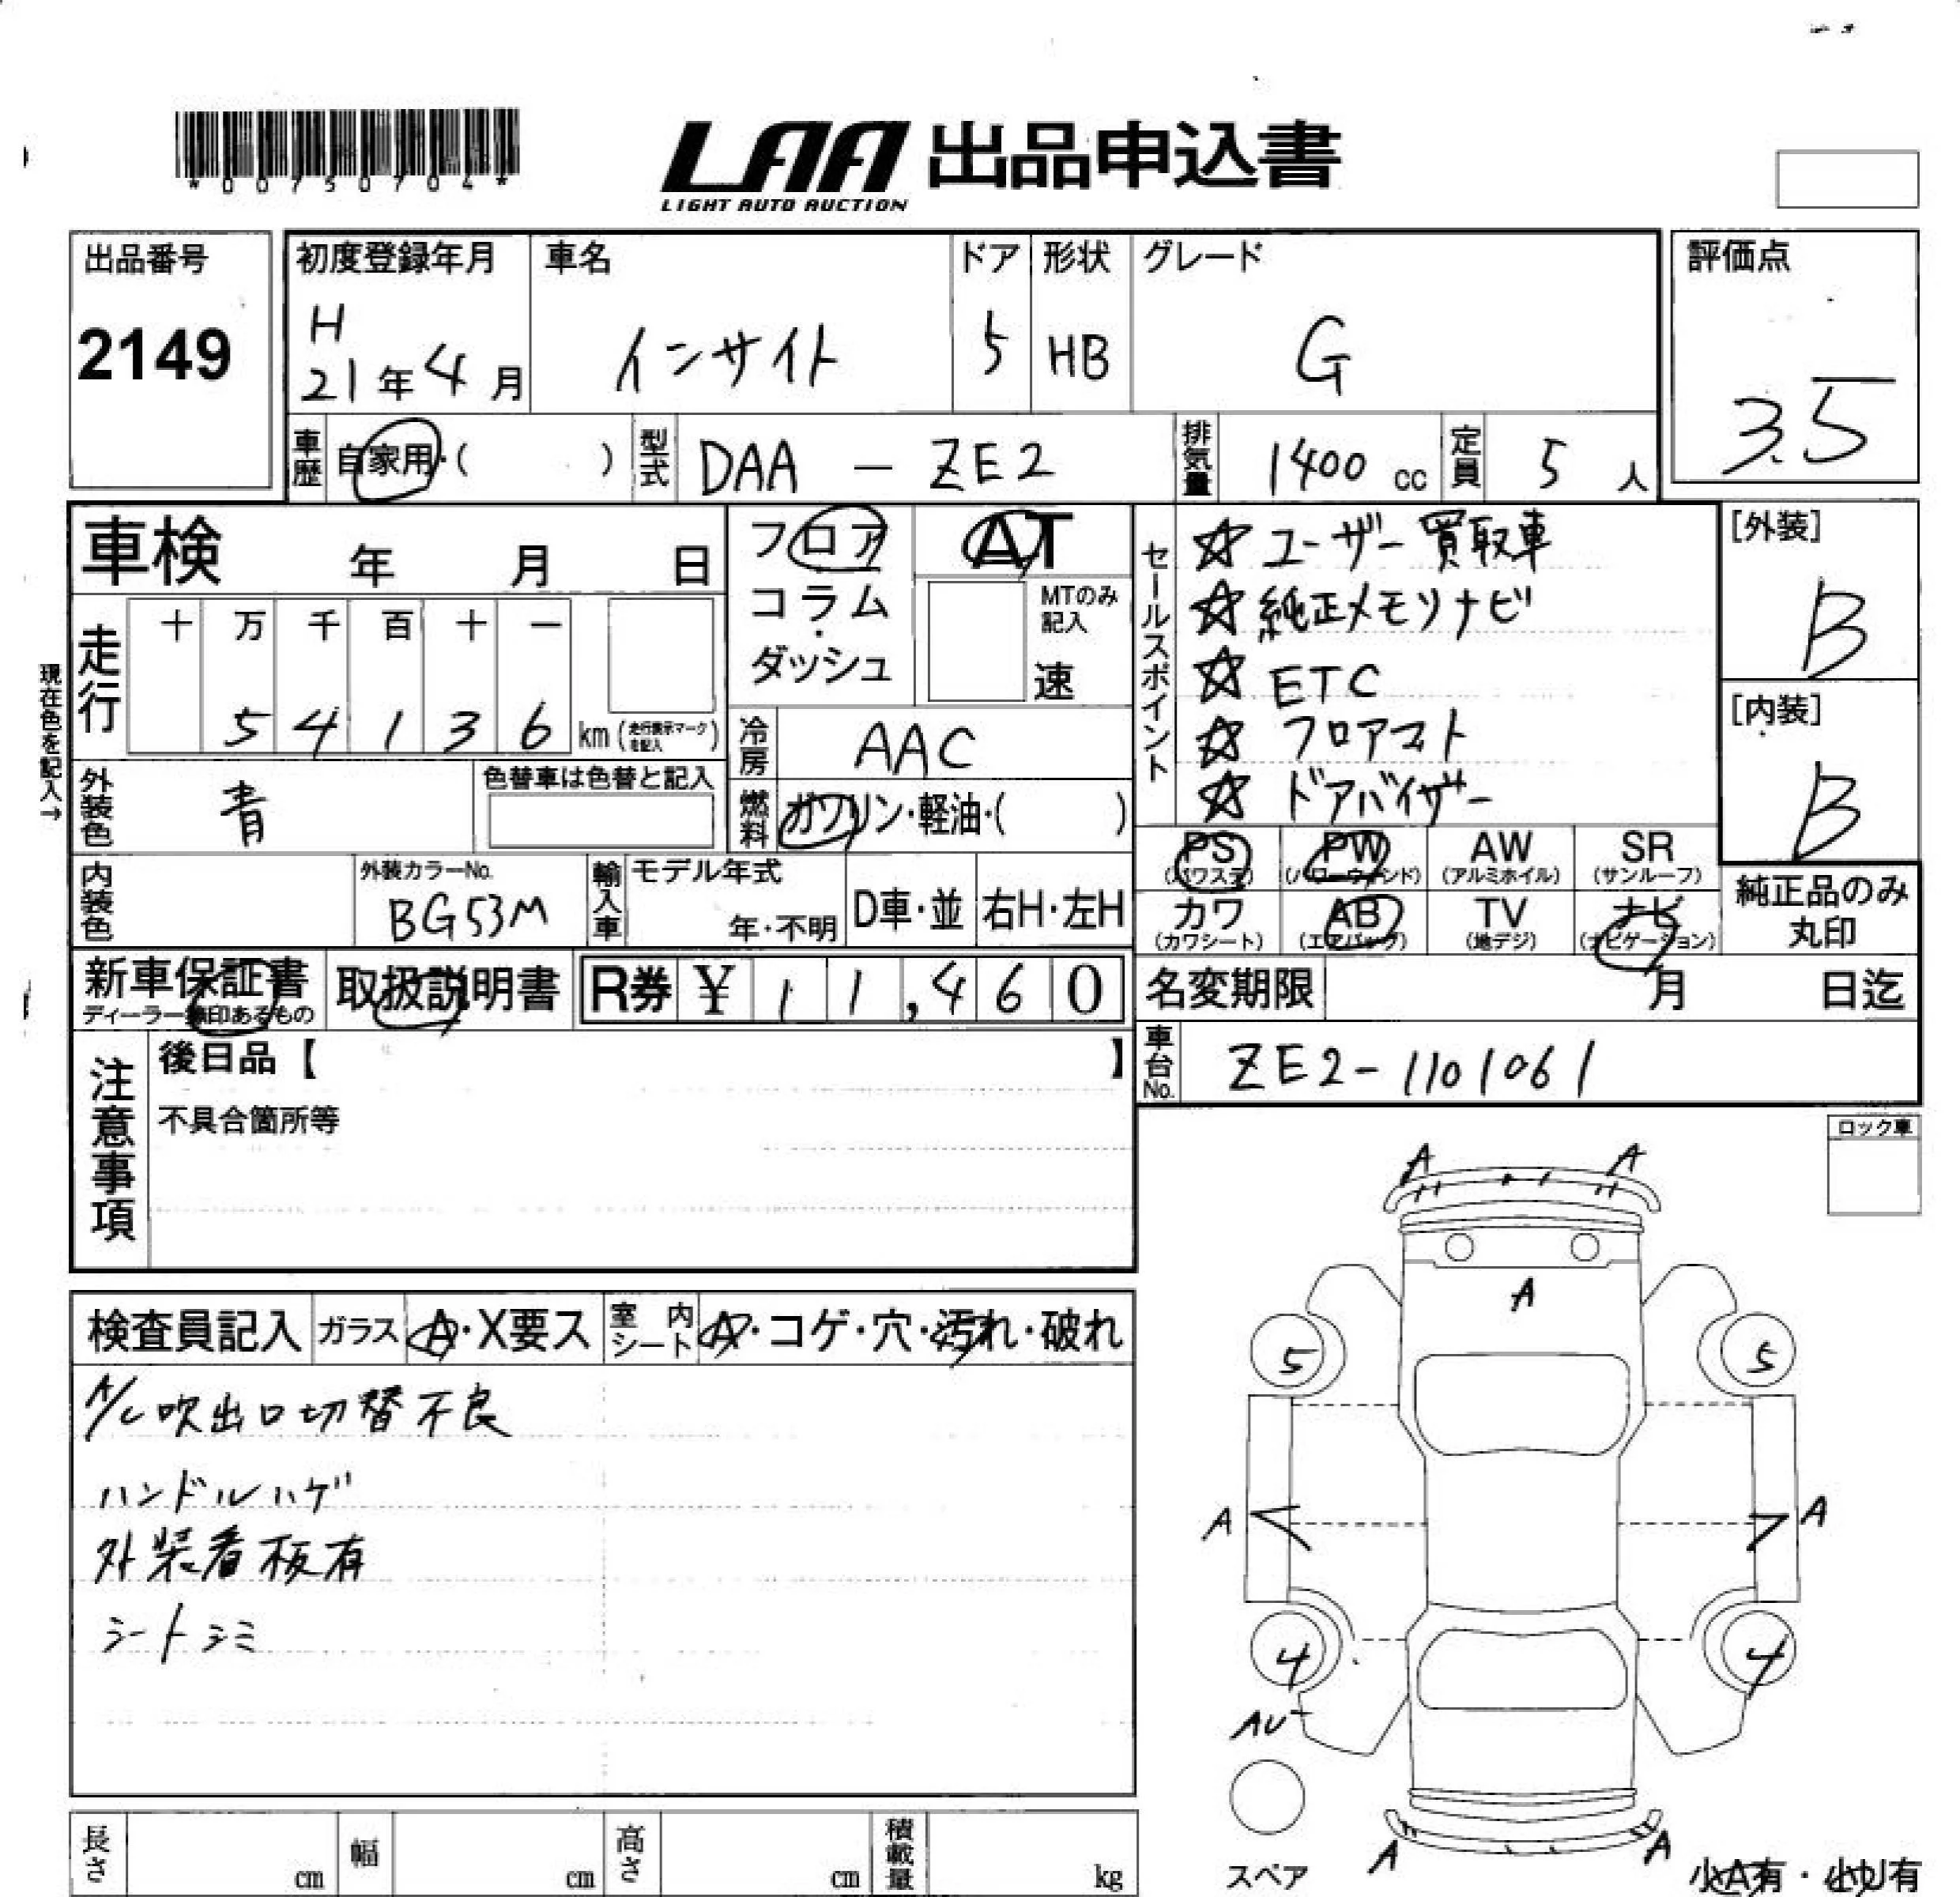 *00750704*
LAA 出品申込書
LIGHT AUTO AUCTION
出品番号
2149
初度登録年月
H
21年4月
車名
インサイト
ドア
5
形状
HB
グレード
G
評価点
3.5
車歴
自家用・( )
型式
DAA - ZE2
排気量
1400 cc
定員
5 人
車検 年 月 日
フロア
コラム
・
ダッシュ
AT
MTのみ
記入
速
セールスポイント
☆ ユーザー買取車
☆ 純正メモリナビ
☆ ETC
☆ フロアマット
☆ ドアバイザー
[外装]
B
[内装]
B
走行
十 万 千 百 十 一
5 4 1 3 6 km (走行表示マークを記入)
現在色を記入→
冷房
AAC
外装色
青
色替車は色替と記入
燃料
ガソリン・軽油・( )
内装色
外装カラーNo.
BG53M
輸入車
モデル年式
年・不明
D車・並
右H・左H
PS
(パワステ)
PW
(パワーウィンド)
AW
(アルミホイル)
SR
(サンルーフ)
カワ
(カワシート)
AB
(エアバッグ)
TV
(地デジ)
ナビ
(ナビゲーション)
純正品のみ
丸印
新車保証書
ディーラー捺印あるもの
取扱説明書
R券 ¥ 11,460
名変期限 月 日迄
車台No.
ZE2-1101061
注意事項
後日品【 】
不具合箇所等
ロック車
検査員記入
ガラス
A・X要ス
室内
シート
A・コゲ・穴・汚れ・破れ
A/C吹出口切替不良
ハンドルハゲ
外装看板有
シートシミ
A A
A
5 5
A A
4 4
AU
A A
スペア
小A有・小U有
長さ cm
幅 cm
高さ cm
積載量 kg